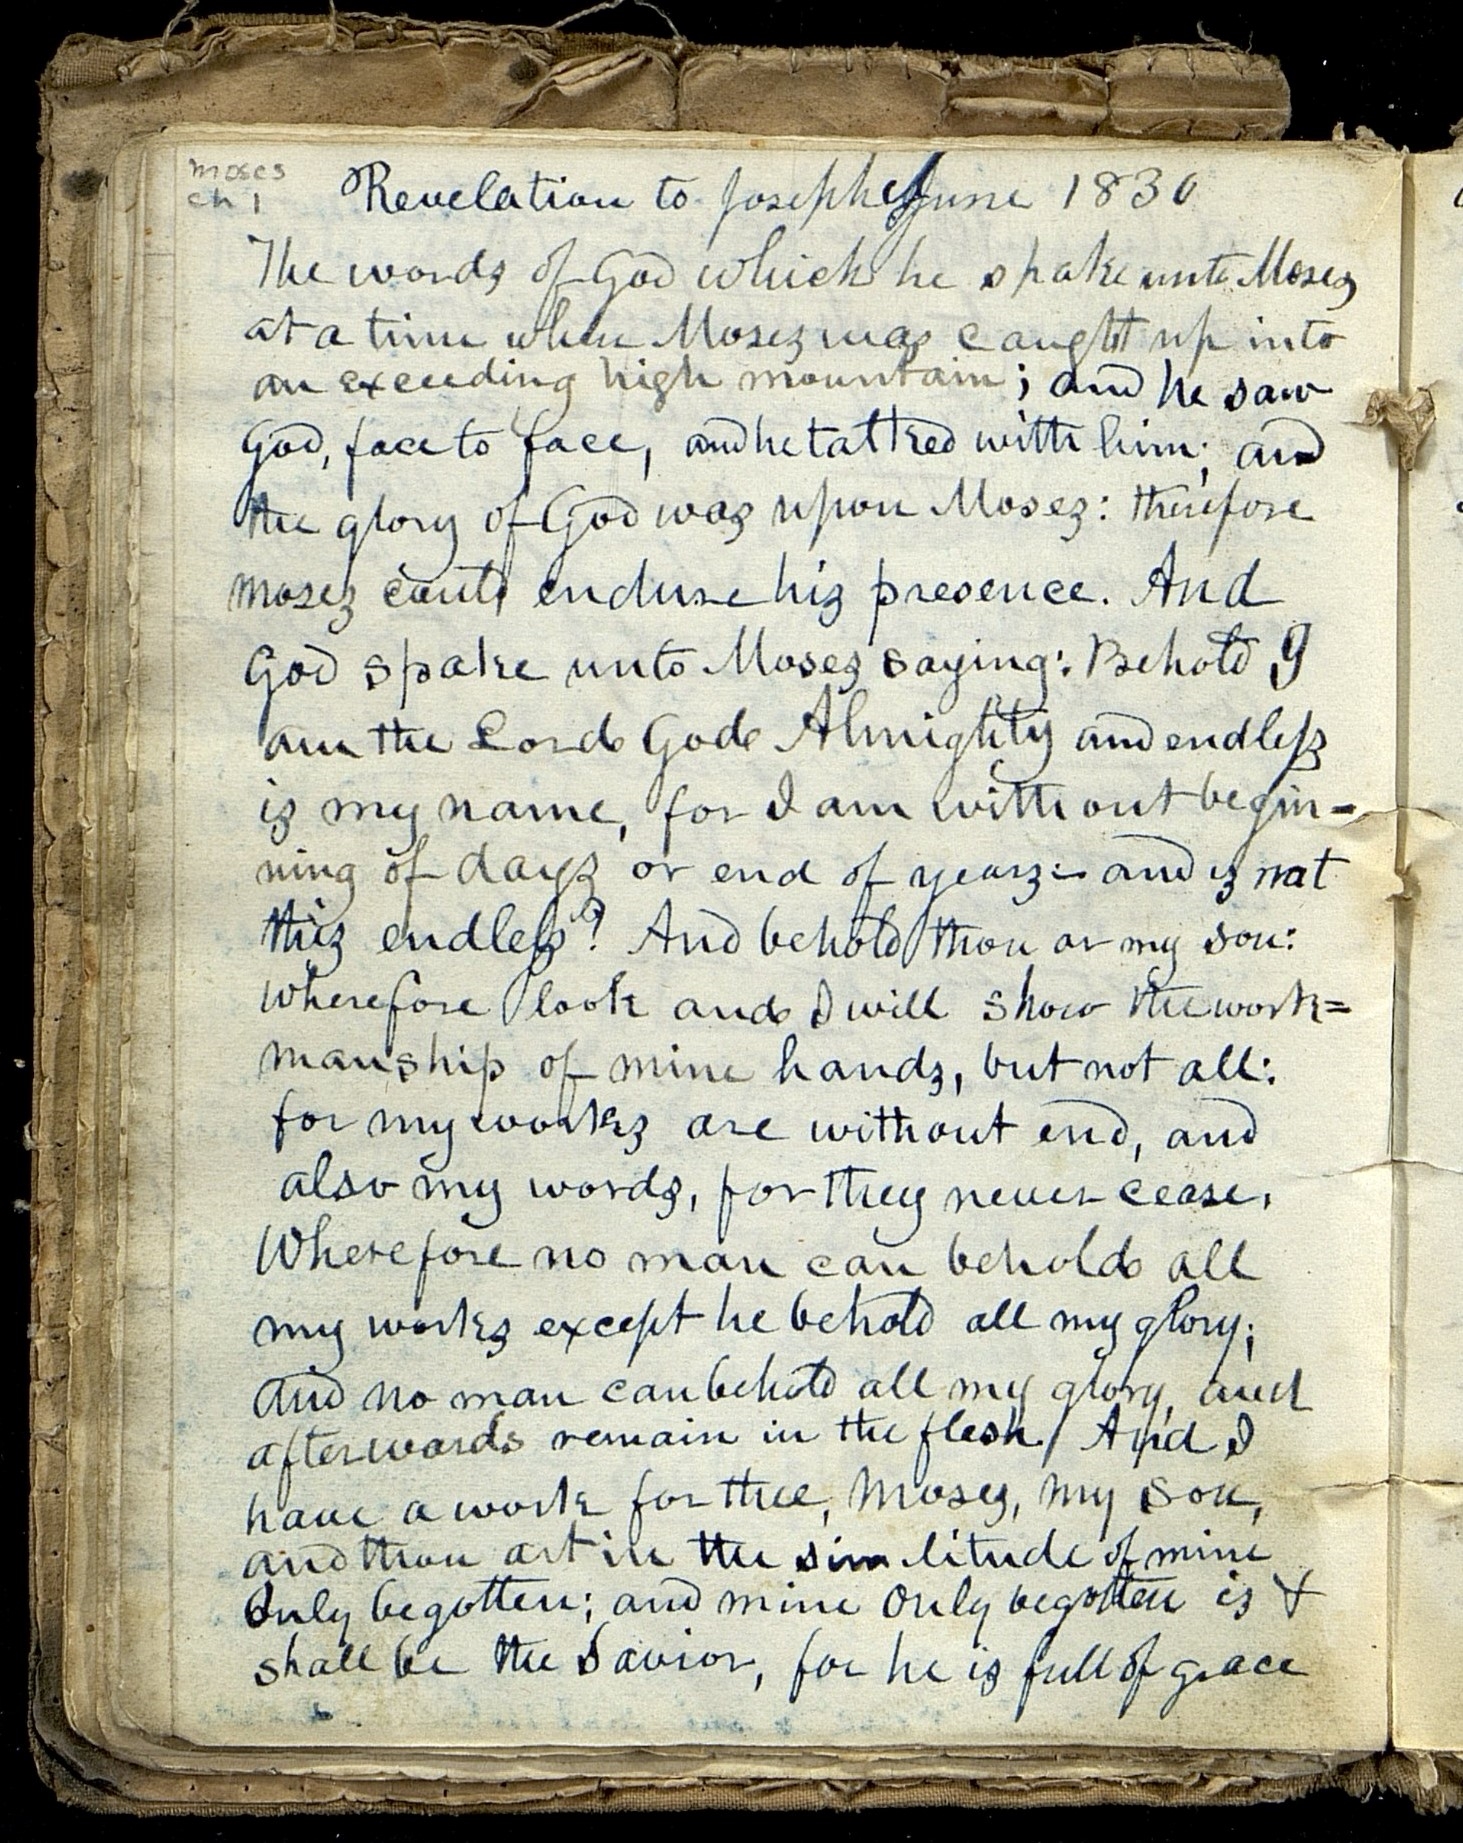 moses
ch 1
Revelation to Joseph S June 1830
The words of God which he spake unto Moses
at a time when Moses was caught up into
an exceeding high mountain; and he saw
God, face to face, and he talked with him; and
the glory of God was upon Moses: therefore
moses could endure his presence. And
God spake unto Moses saying: Behold I
am the Lord God Almighty and endless
is my name, for I am without begin-
ning of days or end of years: and is not
this endless? And behold thou ar my son:
wherefore look and I will show the work=
manship of mine hands, but not all:
for my works are without end, and
also my words, for they never cease,
Wherefore no man can behold all
my works except he behold all my glory;
and no man can behold all my glory, and
afterwards remain in the flesh/ And I
have a work for thee, Moses, my son,
and thou art in the simlitude of mine
Only begotten; and mine Only begotten is &
shall be the Savior, for he is full of grace